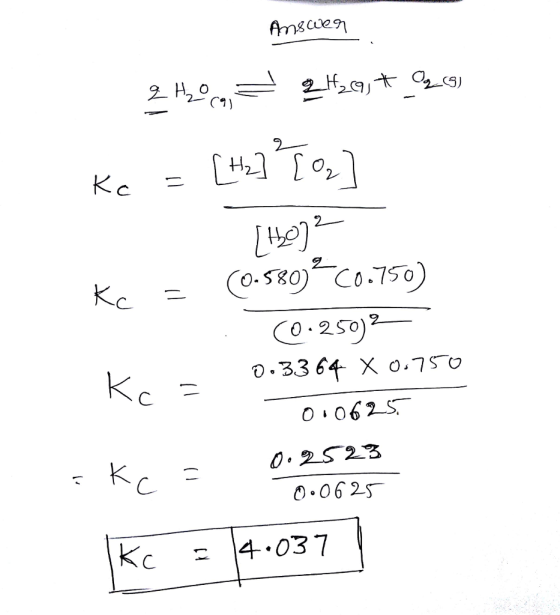 Answer.
2 H₂O(g) ⇌ 2 H₂(g) + O₂(g)
Kc = [H₂]² [O₂] / [H₂O]²
Kc = (0.580)² (0.750) / (0.250)²
Kc = 0.3364 × 0.750 / 0.0625.
= Kc = 0.2523 / 0.0625
Kc = 4.037